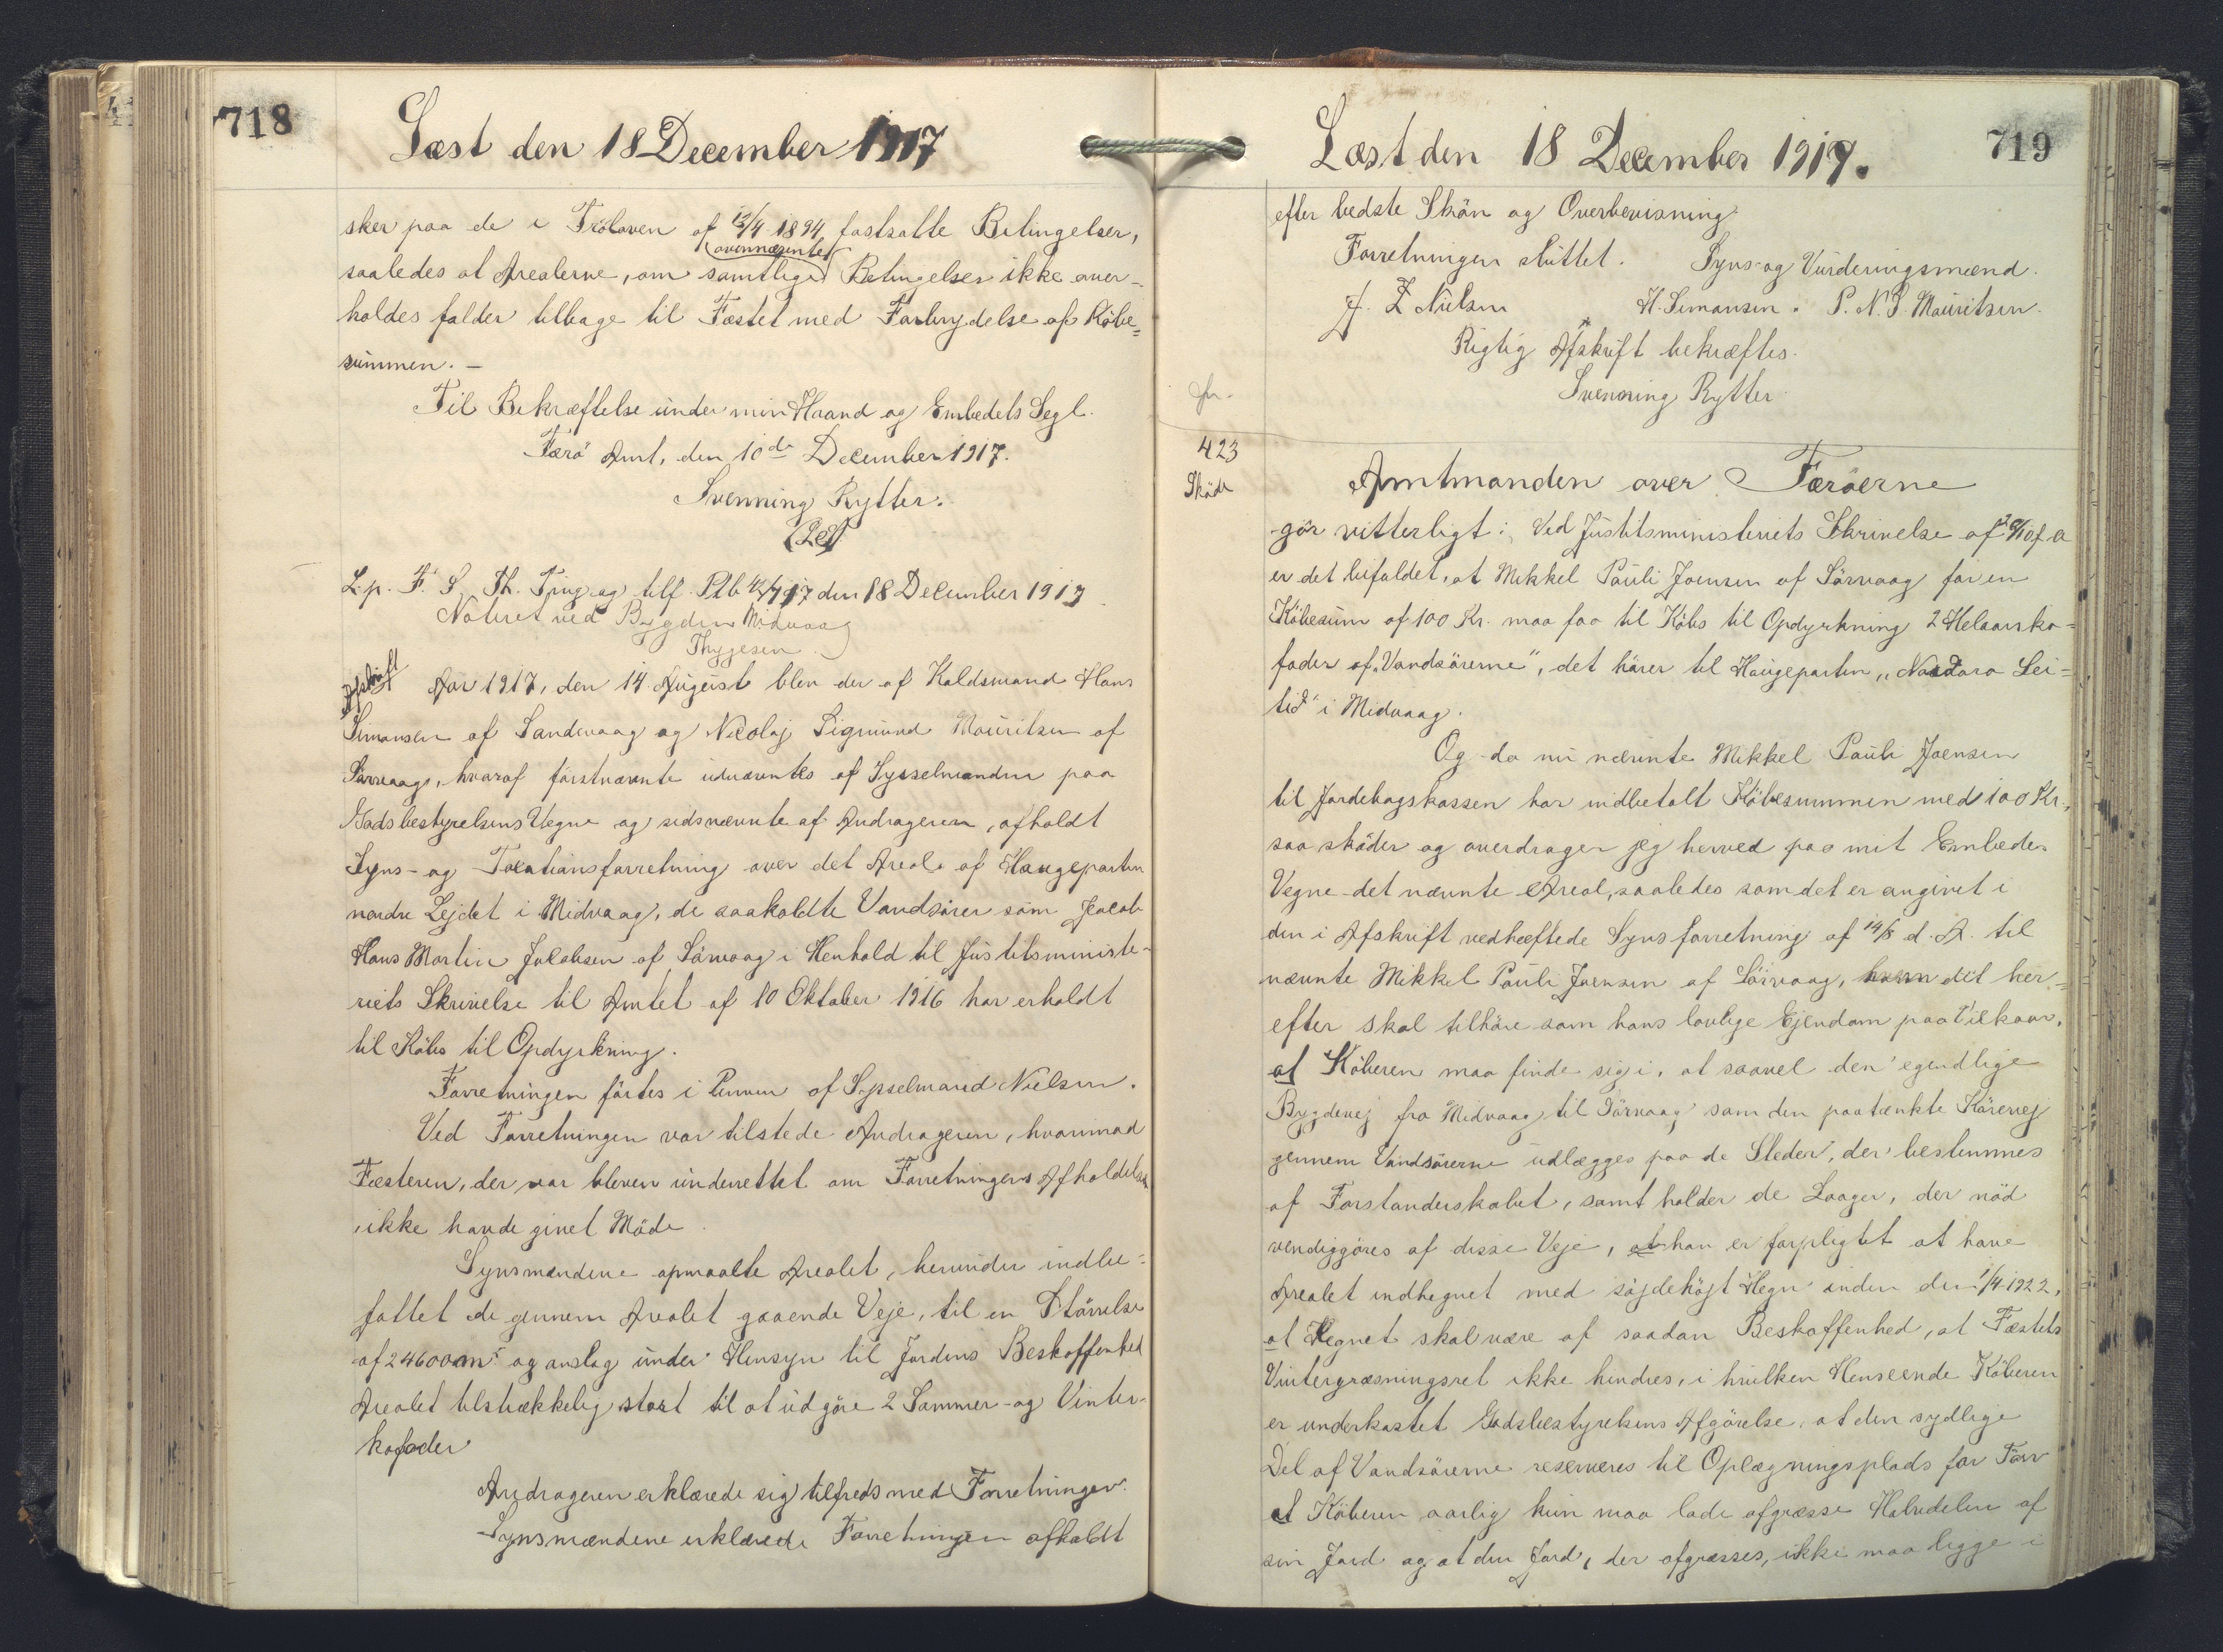 718
Læst den 18 December 1917
sker paa de i Frölaven af 13/4 1894 fastsatte Betingelser,
ovennævnte
saaledes at Arealerne, om samtlige Betingelser ikke over-
holdes falder tilbage til Fæstet med Fortrydelse af Köbe=
summen. –
Til Bekræftelse under min Haand og Embedets Segl.
Færö Amt, den 10de December 1917.
Svenning Rytter.
(LS)
L. p. F. S. Th. Ting og tilf. Ptb. 1917 den 18 December 1917
Noteret ved Bygden Midvaag
Thygesen.
Afskrift
Aar 1917, den 14 August blev der af Koldsmand Hans
Simonsen af Sandevaag og Nicolaj Sigmund Mouritsen af
Sörvaag, hvoraf förstnævnte udnævntes af Sysselmanden paa
Godsbestyrelsens Vegne og sidsnævnte af Andrageren, afholdt
Syns- og Taxationsforretning over det Areal af Haugeparten
nordre Lejdet i Midvaag, de saakaldte Vandsörer som Jacob
Hans Martin Jakobsen af Sörvaag i Henhold til Justitsministe-
riets Skrivelse til Amtet af 10 Oktober 1916 har erholdt
til Köbs til Opdyrkning.
Forretningen förtes i Pennen af Sysselmand Nielsen.
Ved Forretningen var tilstede Andrageren, hvorimod
Fæsteren, der var bleven underrettet om Forretningens Afholdelse
ikke havde givet Möde.
Synsmændene opmaalte Arealet, herunder indbe=
fattet de gennem Arealet gaaende Veje, til en Störrelse
af 24600 m² og anslog under Hensyn til Jordens Beskaffenhed
Arealet tilstrækkelig stort til at udgöre 2 Sommer- og Vinter-
kofoder
Andrageren erklærede sig tilfreds med Forretningen.
Synsmændene erklærede Forretningen afholdt
719
Læst den 18 December 1917.
efter bedste Skön og Overbevisning.
Forretningen sluttet. Syns- og Vurderingsmænd.
J. Z Nielsen H. Simonsen. P. N. S. Mouritsen.
Rigtig Afskrift bekræftes.
Svenning Rytter.
423
Sköde
Amtmanden over Færöerne
gör vitterligt: Ved Justitsministeriets Skrivelse af f. A
er det bifaldet, at Mikkel Pauli Joensen af Sörvaag for en
Köbesum af 100 Kr. maa faa til Köbs til Opdyrkning 2 Helaarsko=
foder af „Vandsörerne", det hörer til Haugeparten „Nordara Lei=
tid" i Midvaag.
Og da nu nævnte Mikkel Pauli Joensen
til Jordebogskassen har indbetalt Köbesummen med 100 Kr.,
saa sköder og overdrager jeg herved paa mit Embedes
Vegne det nævnte Areal, saaledes som det er angivet i
den i Afskrift vedhæftede Synsforretning af 14/8 d. A. til
nævnte Mikkel Pauli Joensen af Sörvaag, hvem det her=
efter skal tilhöre som hans lovlige Ejendom paa Vilkaar,
at Köberen maa finde sig i, at saavel den egentlige
Bygdevej fra Midvaag til Sörvaag som den paatænkte Körevej
gennem Vandsörerne udlægges paa de Steder, der bestemmes
af Forstanderskabet, samt holder de Laager, der nöd
vendiggöres af disse Veje, at han er forpligtet at have
Arealet indhegnet med söjdehöjt Hegn inden den 1/4 1922,
at Hegnet skal være af saadan Beskaffenhed, at Fæstets
Vintergræsningsret ikke hindres, i hvilken Henseende Köberen
er underkastet Godsbestyrelsens Afgörelse, at den sydlige
Del af Vandsörerne reserveres til Oplægningsplads for Törv
at Köberen aarlig kun maa lade afgræsse Halvdelen af
sin Jord og at den Jord, der afgræsses, ikke maa ligge i